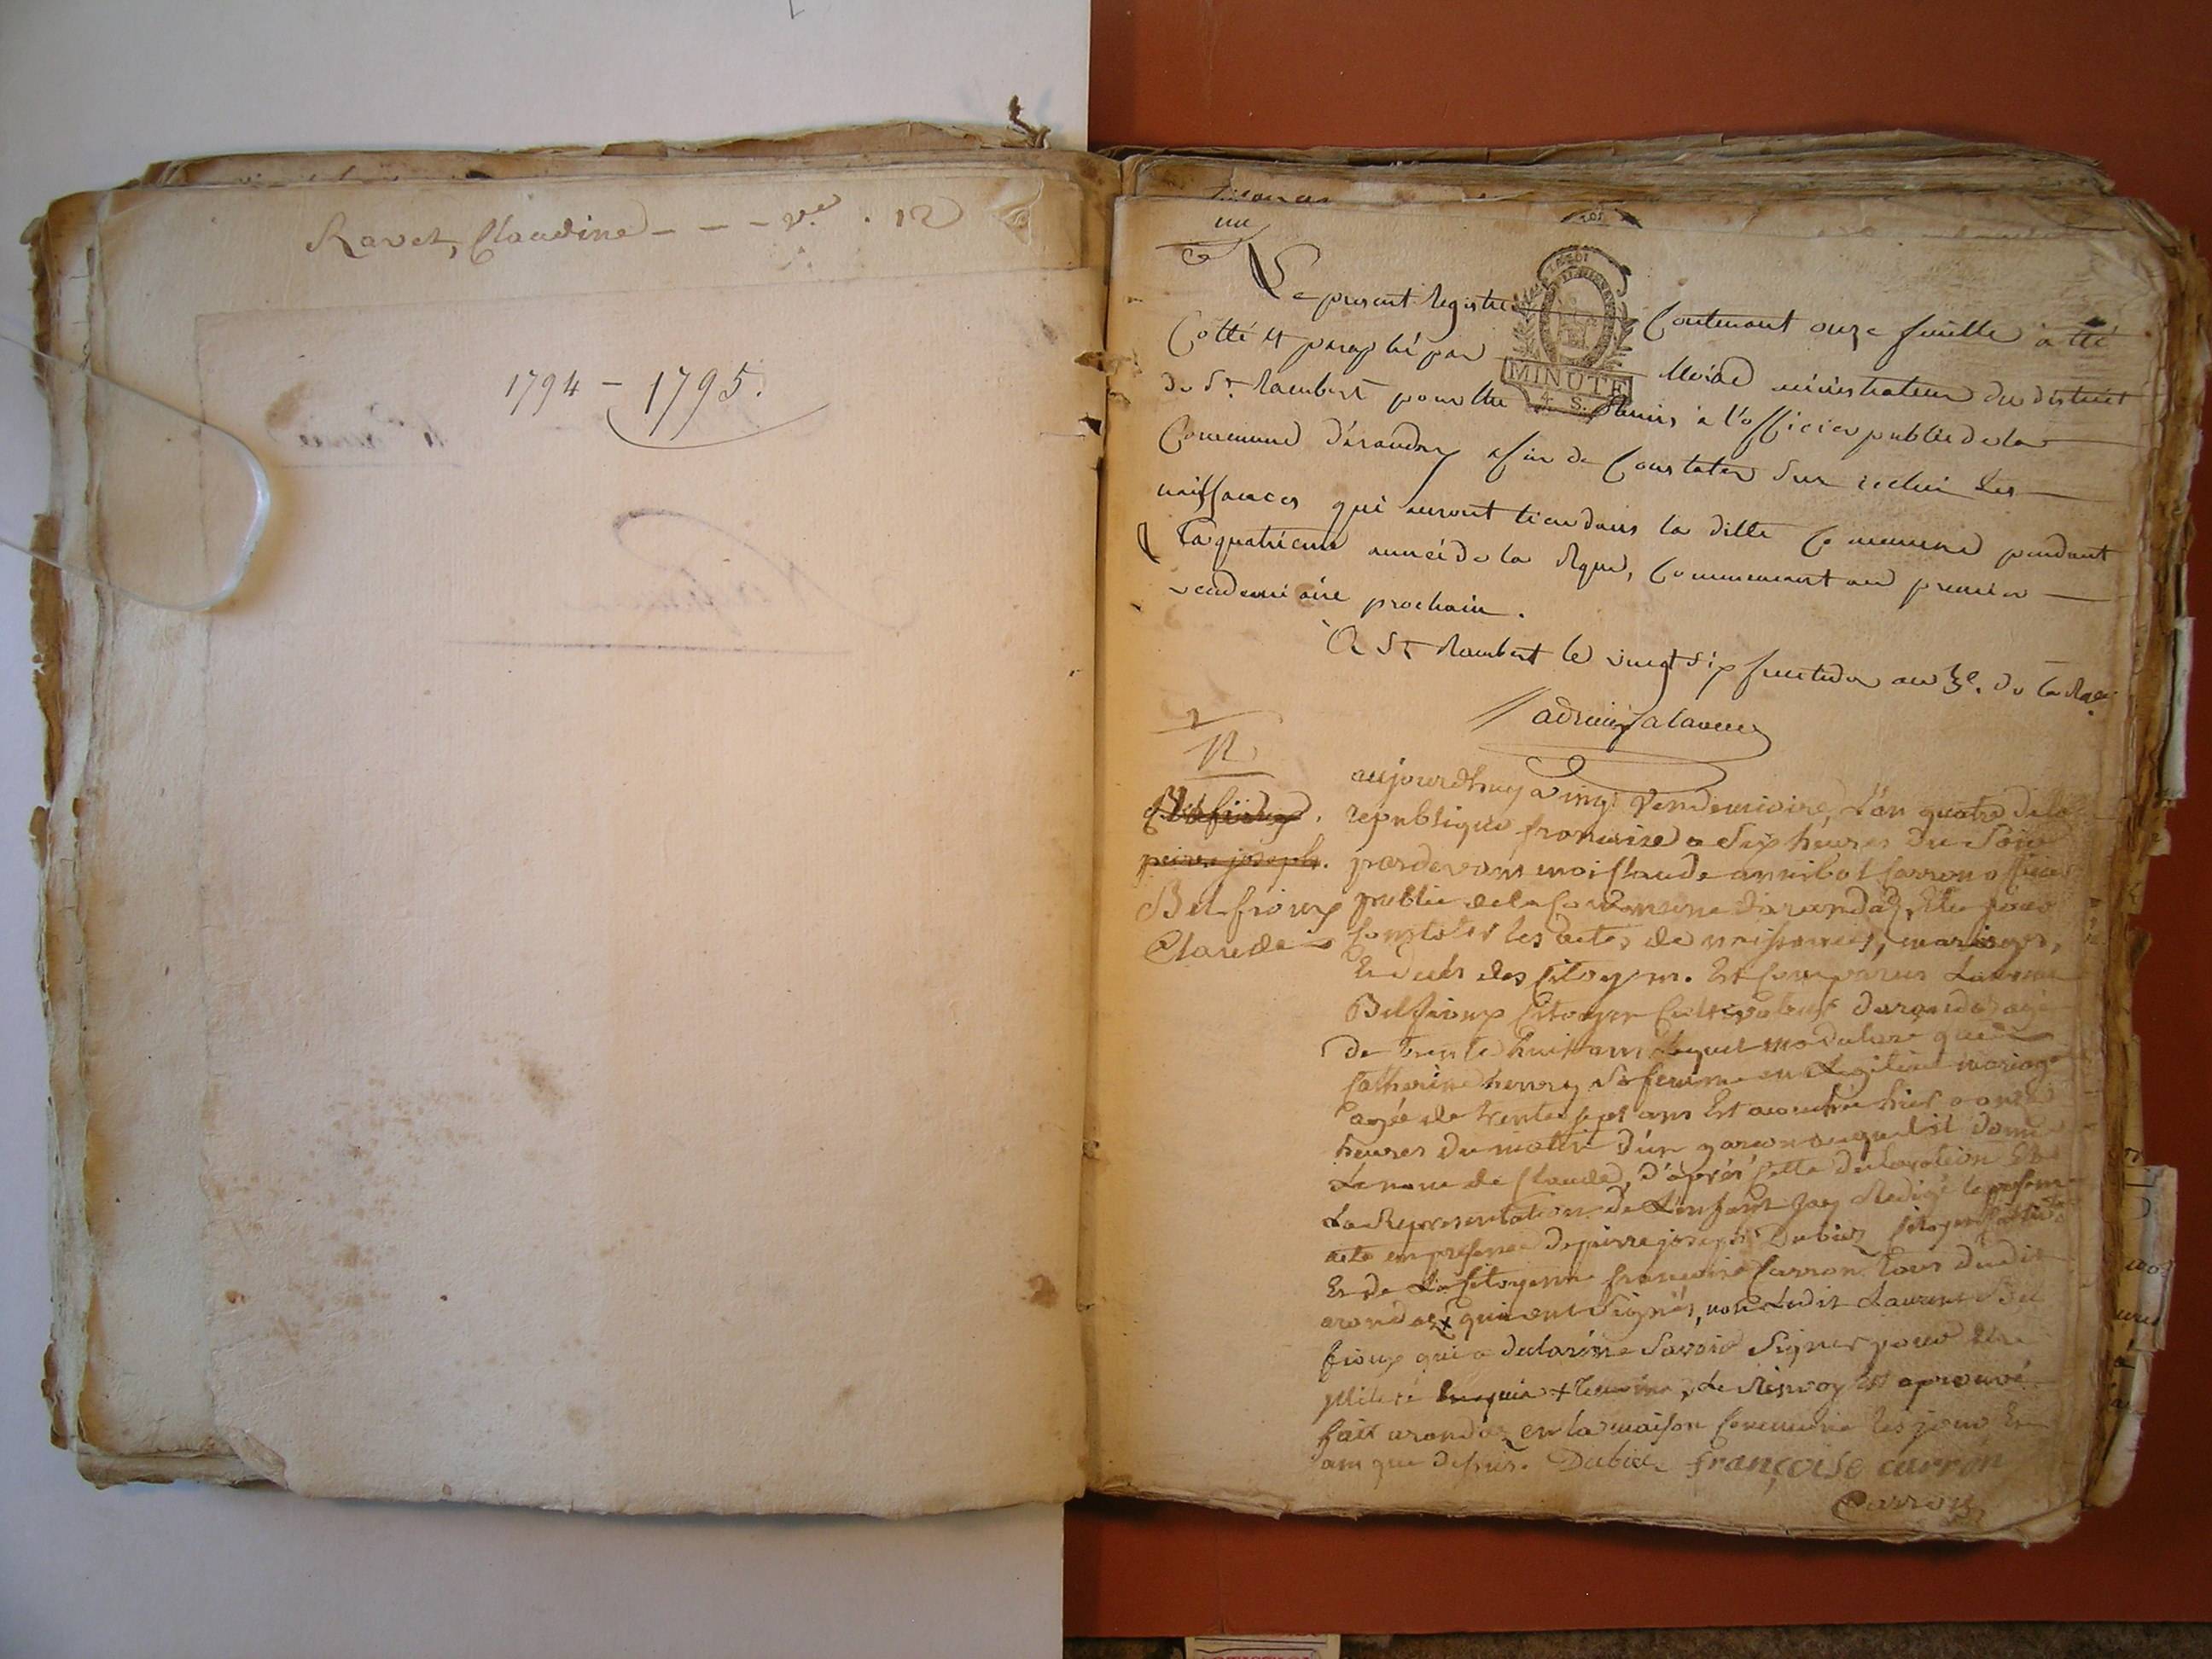 Ravet, Claudine - - - v.e . 12
1794 - 1795.
une
Le présent Registre Contenant onze feuille a été
Cotté et paraphé par administrateur du district
de St. Rambert pour être remis à l'officier public de la
Commune d'arandas afin de Constater sur icelui les
naissances qui auront lieu dans la ditte Commune pendant
la quatrieme année de la Rque, Commencant au premier
vendemiaire prochain.
A St Rambert le vingt six fructidor an 3e. de la Rque
MINUTE
4. S.
N
pierre joseph.
Belfioux
Claude
aujourdhuy vingt Vendemiaire, l'an quatre de la
republique francoise a Six heures du Soir
pardevant moi Claude annibal Carron officier
public de la Commune darandas, Elu pour
Constater les actes de naissances, mariages,
Et deces des Citoyens. Est Comparus Laurent
Belfioux Citoyen Cultivateur darandas agé
de trente huit ans lequel ma declaré que
Catherine henry Sa femme en Legitime mariage
agée de trente sept ans Est acouchée hier a onze
heures du matin d'un garcon auquel il donne
Le nom de Claude, d'aprés Cette declaration Et
La Representation de L'enfant Jay Redigé le present
acte en presence de pierre joseph Dubiez Citoyen
Et de La Citoyenne francoise Carron tous dudit
arandas + qui ont Signés, non Ledit Laurent Bel
fioux qui a declaré ne Savoir Signer pour Etre
+ temoins, Le Renvoy Est aprouvé
fait arandas en la maison Commune les jour Et
an que dessus. Dubiez françoise carron
Carron